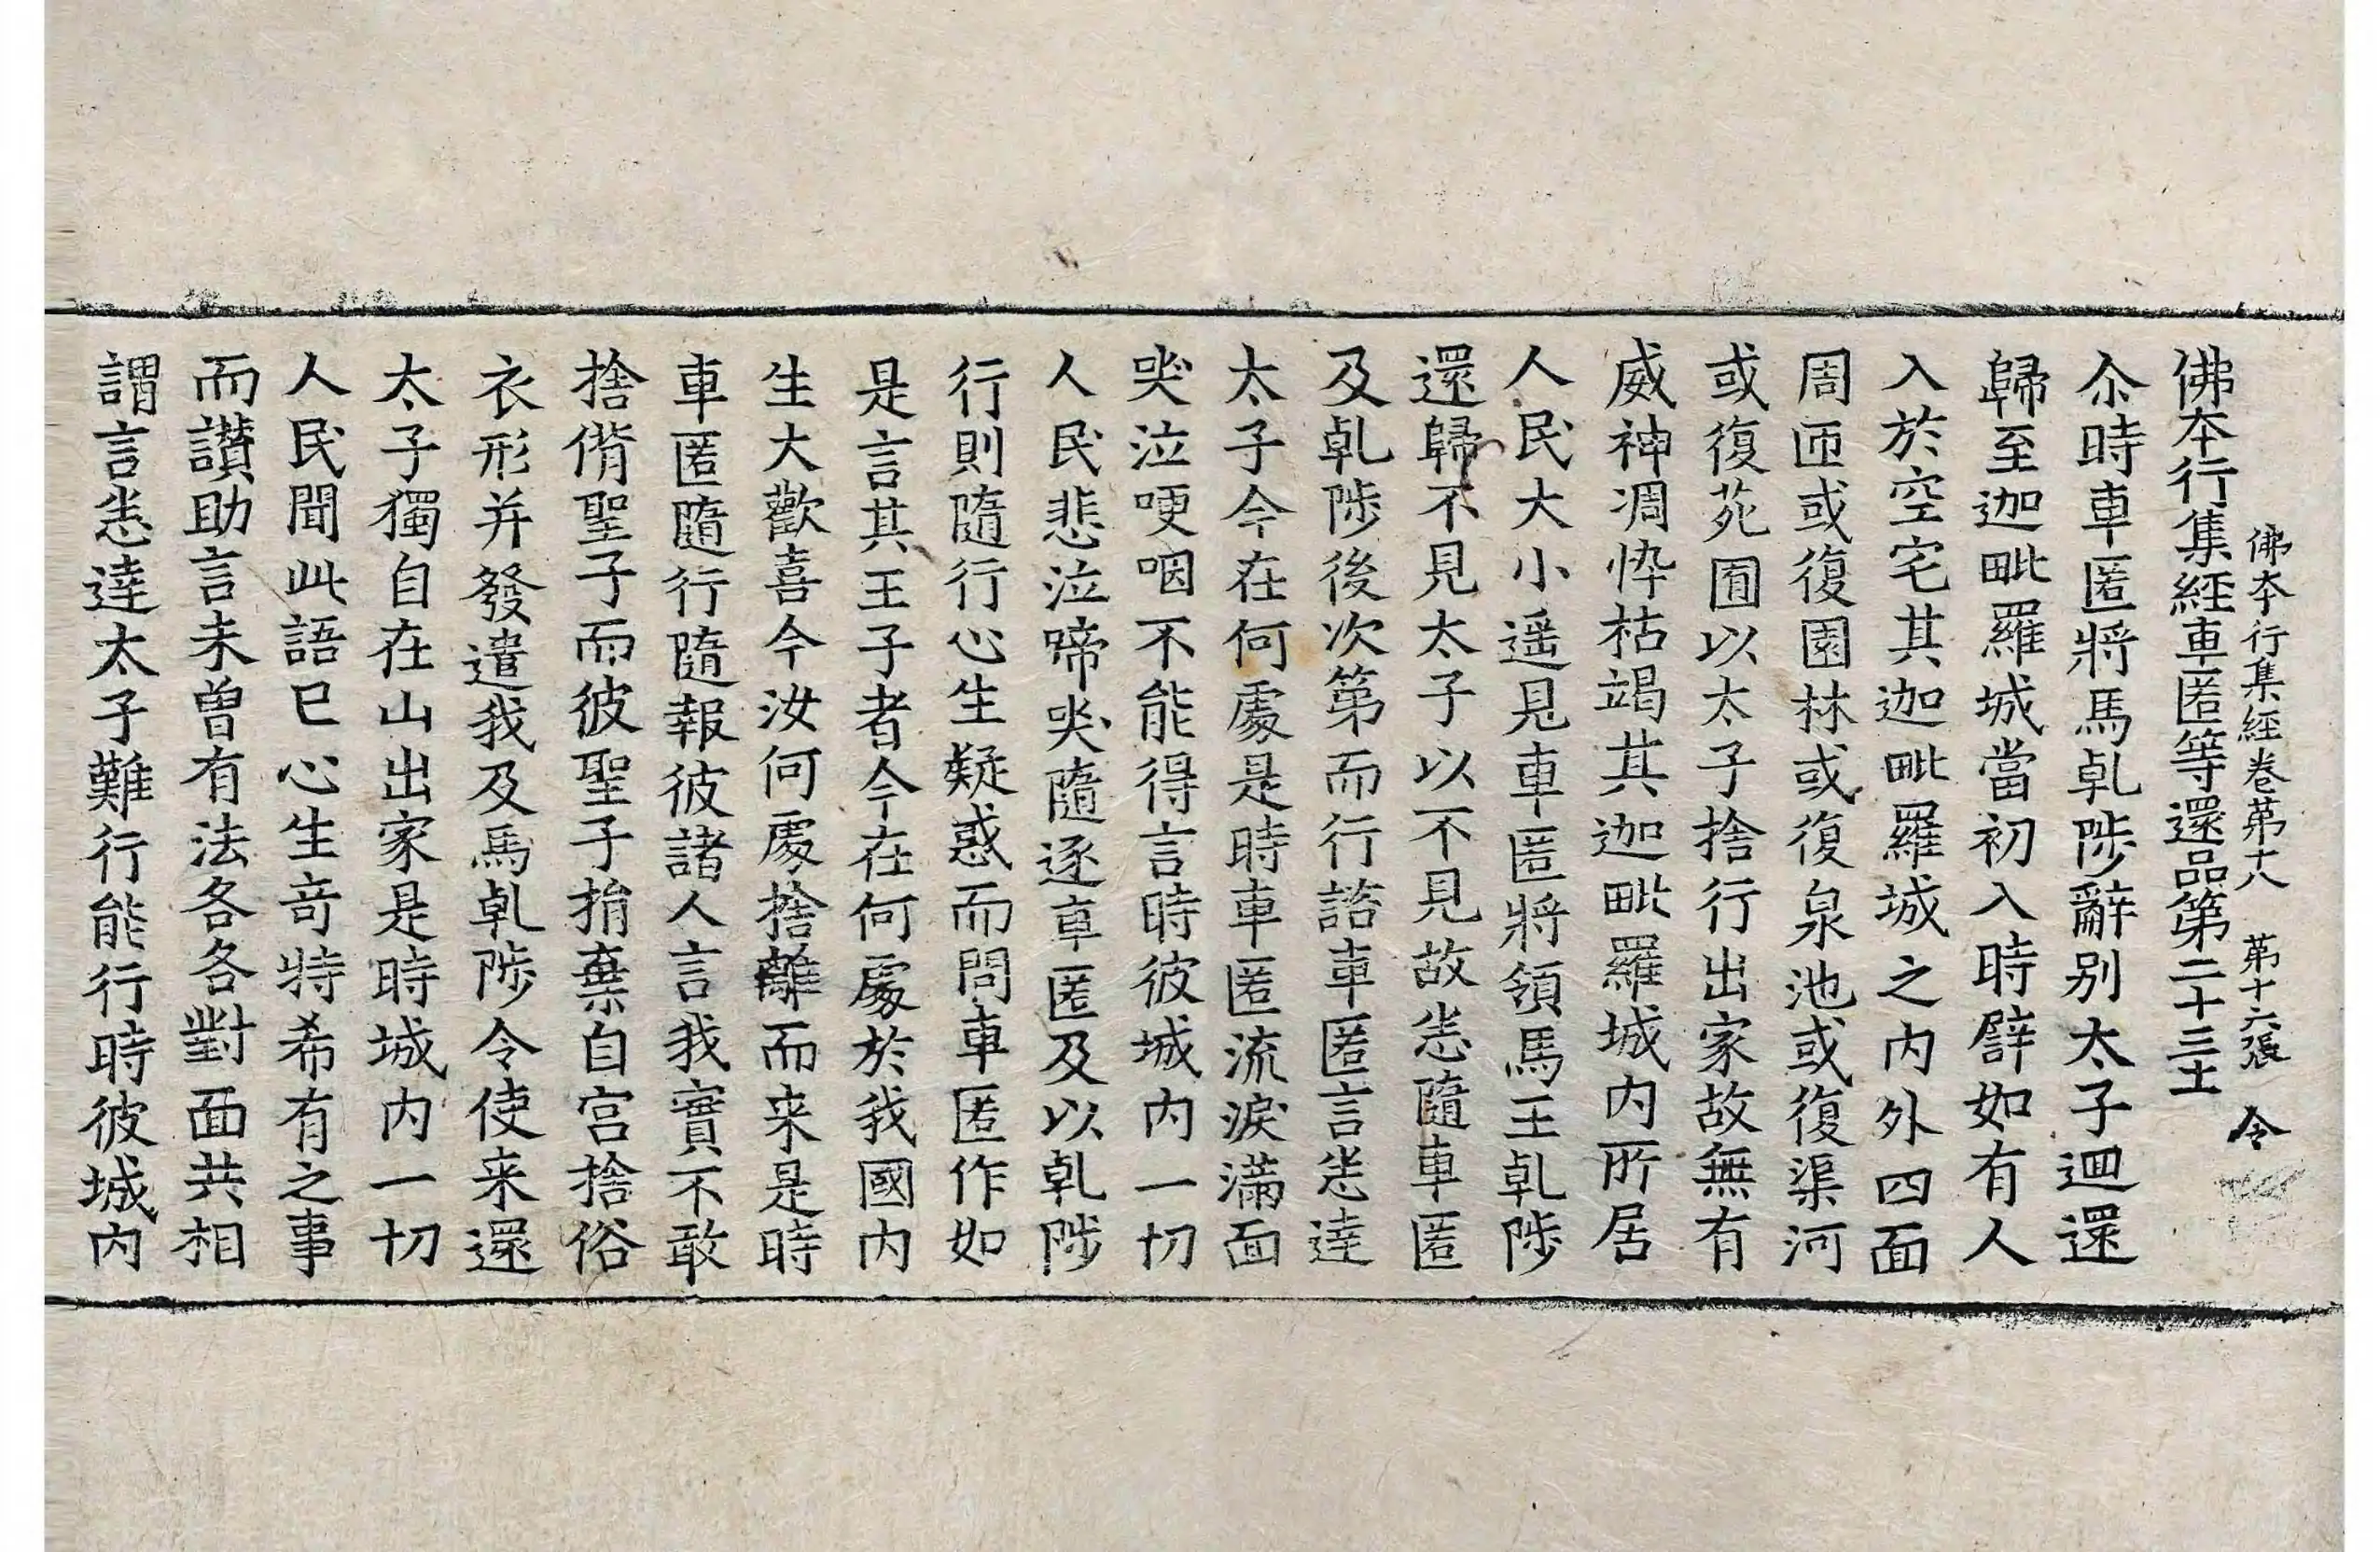 佛本行集經卷苐十八 苐十六張 令
佛本行集經車匿等還品第二十三上
尒時車匿將馬乹陟辭別太子迴還
歸至迦毗羅城當初入時譬如有人
入於空宅其迦毗羅城之內外四面
周匝或復園林或復泉池或復渠河
或復苑囿以太子捨行出家故無有
威神凋悴枯竭其迦毗羅城內所居
人民大小遥見車匿將領馬王乹陟
還歸不見太子以不見故悉隨車匿
及乹陟後次第而行諮車匿言悉達
太子今在何處是時車匿流淚滿面
哭泣哽咽不能得言時彼城內一切
人民悲泣啼哭隨逐車匿及以乹陟
行則隨行心生疑惑而問車匿作如
是言其王子者今在何處於我國內
生大歡喜今汝何處捨離而来是時
車匿隨行隨報彼諸人言我實不敢
捨偝聖子而彼聖子捐棄自宮捨俗
衣形并發遣我及馬乹陟令使来還
太子獨自在山出家是時城內一切
人民聞此語已心生竒特希有之事
而讃助言未曾有法各各對面共相
謂言悉達太子難行能行時彼城內